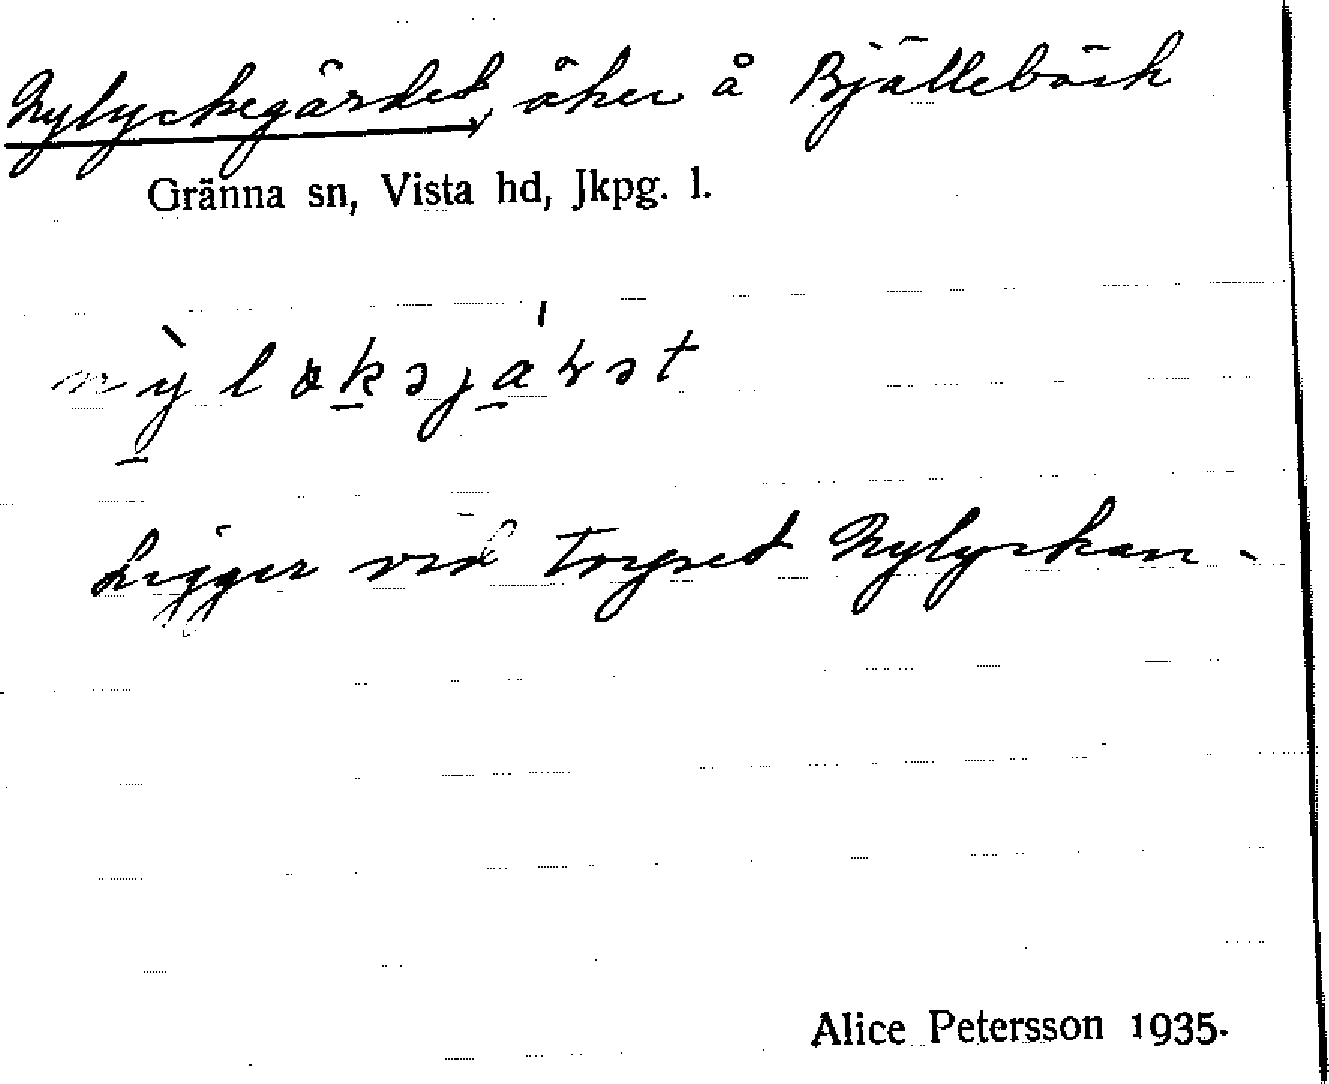 Nylyckegärdet, åker å Bjällebäck
Gränna sn, Vista hd, Jkpg. l.
Ligger vid torpet Nylyckan.
Alice Petersson 1935.